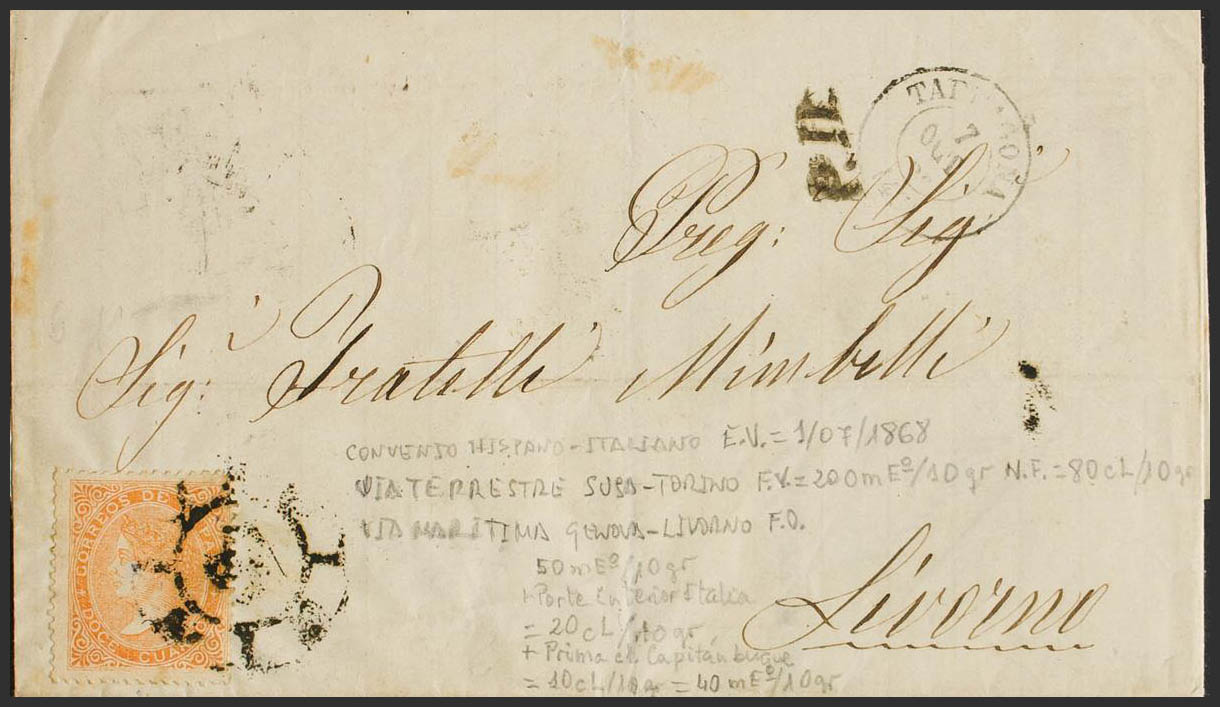 P.D.
TARRAGONA
7
OCT
Preg: Sig
Sig: Fratelli Mimbelli
CONVENIO HISPANO-ITALIANO E.V. = 1/07/1868
VIA TERRESTRE SUSA-TORINO F.V. = 200 mEº/10 gr N.F. = 80 cL/10 gr
VIA MARITIMA GENOVA-LIVORNO F.O.
50 mEº/10 gr
+ Porte interior Italia
= 20 cL/10 gr
+ Prima al Capitán buque
= 10 cL/10 gr = 40 mEº/10 gr
Livorno
CORREOS DE
DOCE CUA